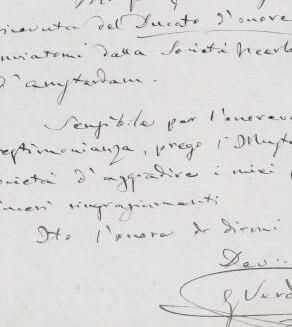 del Ducato d'onore
inviatomi dalla Società Neerl
d'Amsterdam.
Sensibile per l'onorev
testimonianza, prego l'Illust
ocietà d'aggradire i miei
ringraziamenti
Ho l'onore di dirmi
Dev
G Verd